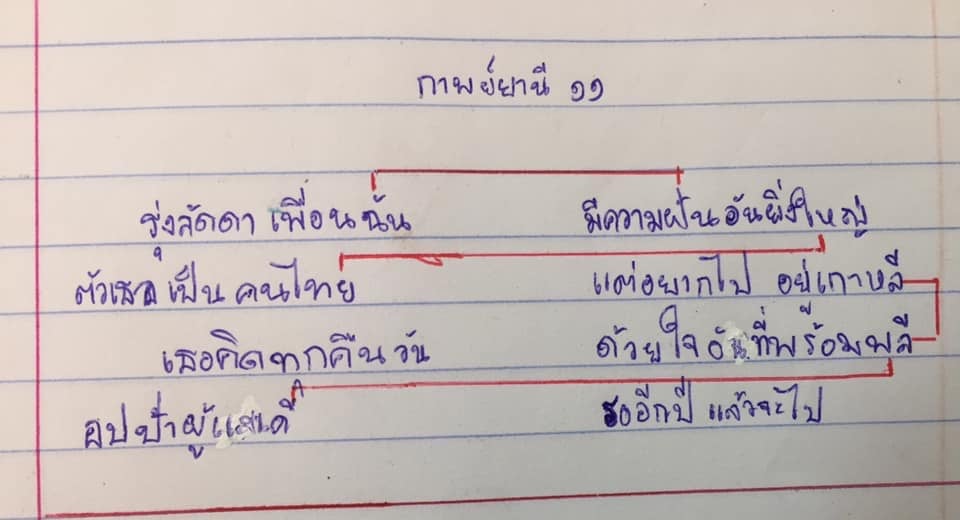 กาพย์ยานี ๑๑
รุ่งลัดดา เพื่อนฉัน มีความฝันอันยิ่งใหญ่
ตัวเธอเป็นคนไทย แต่อยากไป อยู่เกาหลี
เธอคิดทุกคืนวัน ด้วยใจอันที่พร้อมพลี
อปป้าผู้แสนดี รออีกปี แล้วจะไป